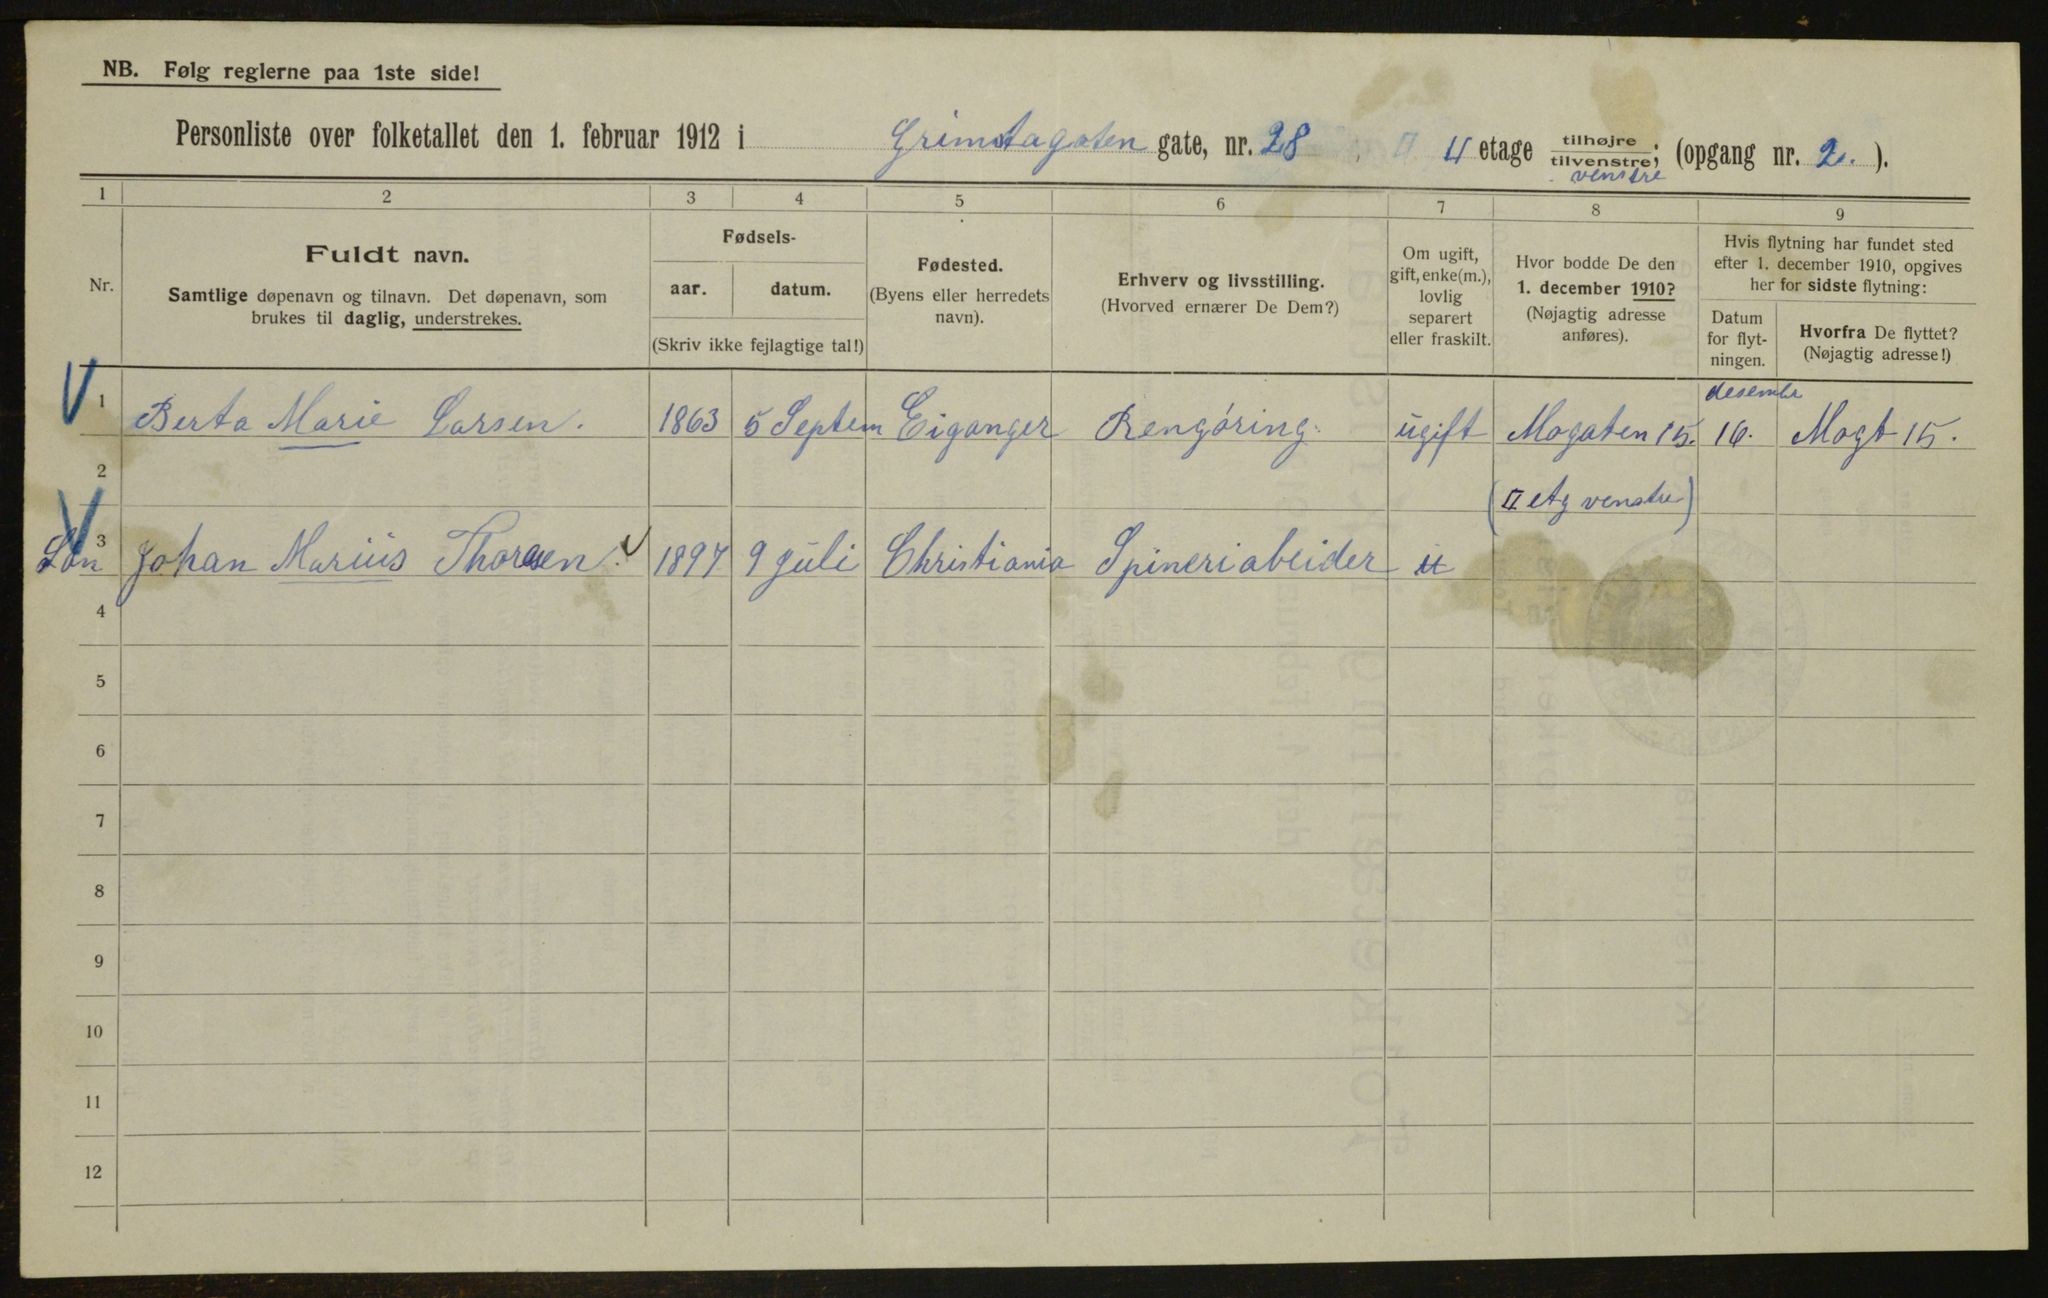 NB. Følg reglerne paa 1ste side!
Personliste over folketallet den 1. februar 1912 i Grimstagaten gate, nr. 28 4 etage tilhøjre, tilvenstre, (opgang nr. 2. ).
venstre
1 2 3 4 5 6 7 8 9
Nr.
Fuldt navn.
Samtlige døpenavn og tilnavn. Det døpenavn, som
brukes til daglig, understrekes.
Fødsels-
aar. datum.
(Skriv ikke fejlagtige tal!)
Fødested.
(Byens eller herredets
navn).
Erhverv og livsstilling.
(Hvorved ernærer De Dem?)
Om ugift,
gift, enke(m.),
lovlig
separert
eller fraskilt.
Hvor bodde De den
1. december 1910?
(Nøjagtig adresse
anføres).
Hvis flytning har fundet sted
efter 1. december 1910, opgives
her for sidste flytning:
Datum
for flyt-
ningen.
Hvorfra De flyttet?
(Nøjagtig adresse!)
desember
1 Berta Marie Larsen. 1863 5 Septem Eiganger Rengøring. ugift Mogaten 15. 16. Mogt 15.
2 (II etg venstre)
3 Søn Johan Marius Thoresen. 1897 9 Juli Christiania Spineriabeider u
4
5
6
7
8
9
10
11
12